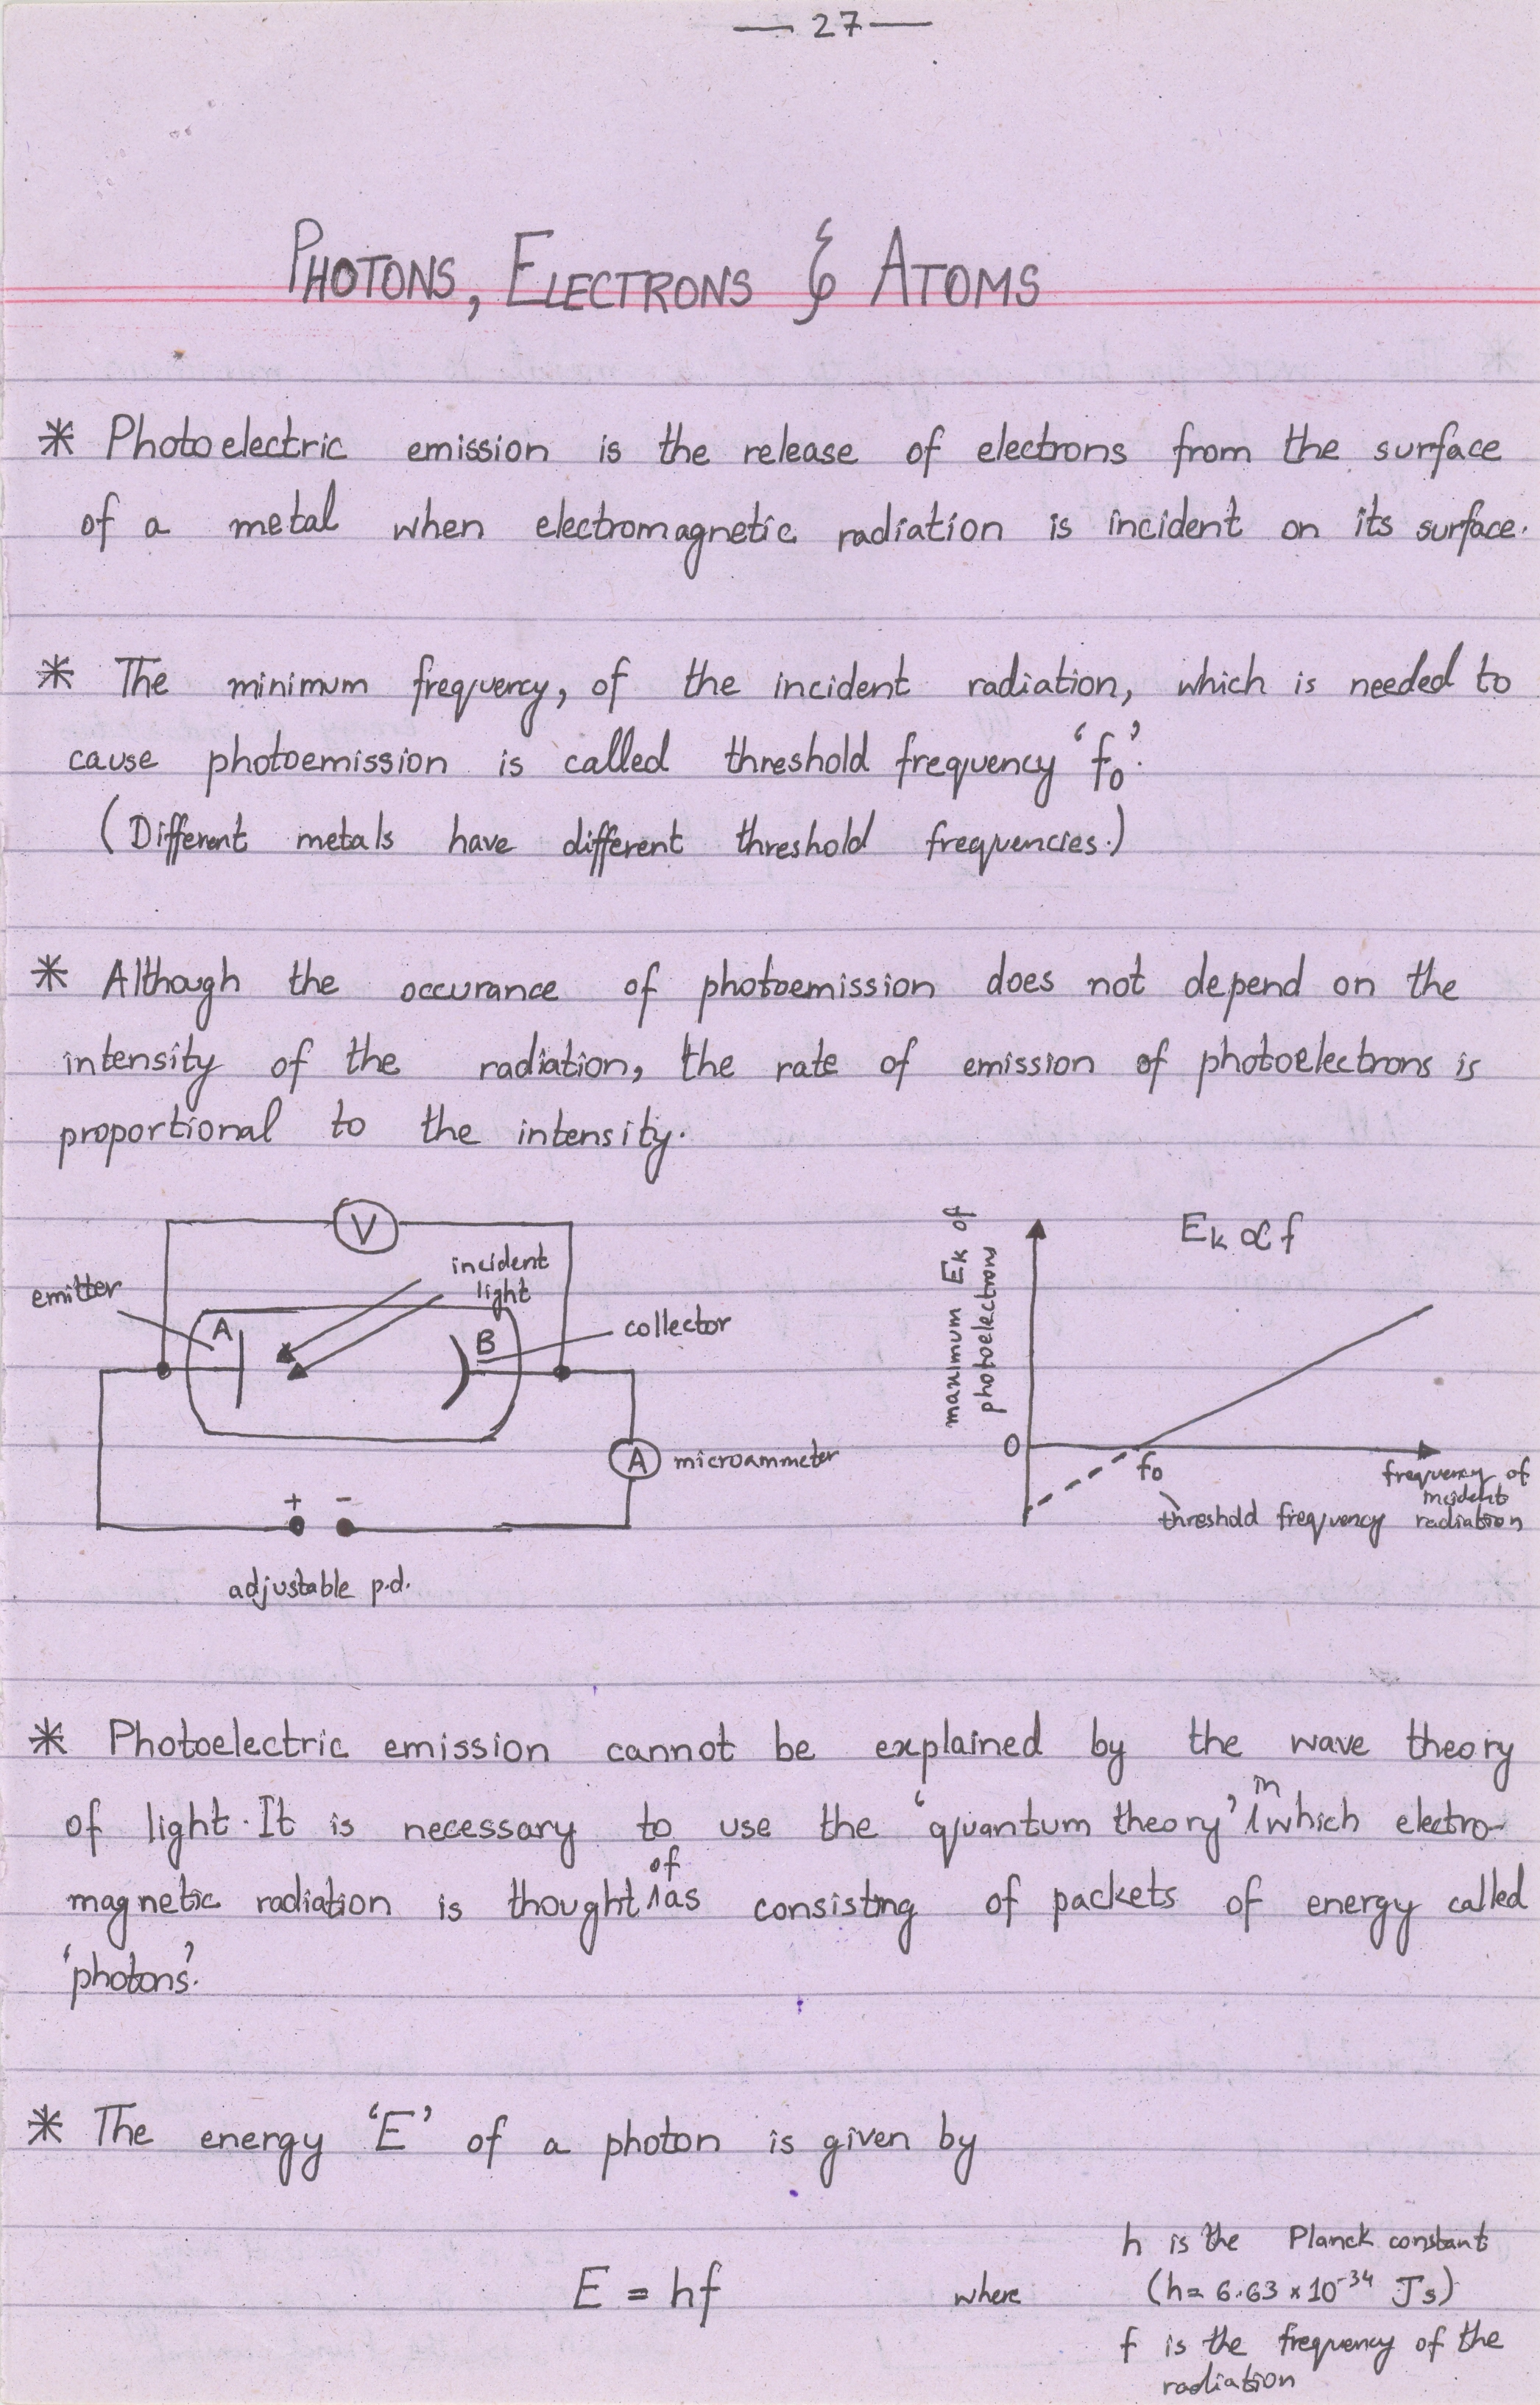 — 27 —
PHOTONS, ELECTRONS & ATOMS
* Photoelectric emission is the release of electrons from the surface
of a metal when electromagnetic radiation is incident on its surface.
* The minimum frequency, of the incident radiation, which is needed to
cause photoemission is called threshold frequency 'f₀'.
(Different metals have different threshold frequencies.)
* Although the occurance of photoemission does not depend on the
intensity of the radiation, the rate of emission of photoelectrons is
proportional to the intensity.
V
incident
light
emitter
A
B
collector
A microammeter
+ -
adjustable p.d.
maximum Ek of
photoelectrons
Ek ∝ f
0
f₀
threshold frequency
frequency of
incident
radiation
* Photoelectric emission cannot be explained by the wave theory
of light. It is necessary to use the 'quantum theory' in which electro-
magnetic radiation is thought of as consisting of packets of energy called
'photons'.
* The energy 'E' of a photon is given by
E = hf where
h is the Planck constant
(h= 6.63 x 10⁻³⁴ Js)
f is the frequency of the
radiation